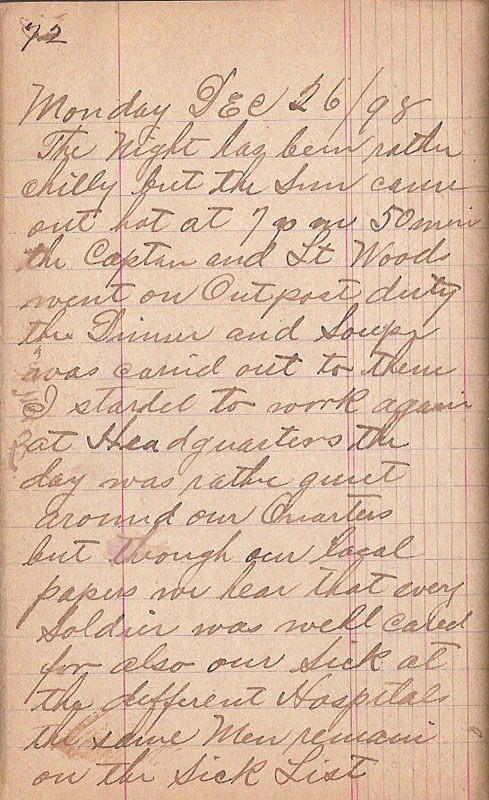 72
Monday DEC 26/98
The Night haz been rathe
chilly but the Sun came
out hot at 7 50 min
the Captan and Lt Woods
went on Outpost duty
the Dinner and Soupr
was carrid out to them
I stardet to work again
at Headquarters the
day was rathe quiet
around our Quarters
but though our Local
papers we hear that every
Soldier was well cared
for also our Sick at
the different Hospitals
the same Men remain
on the Sick List